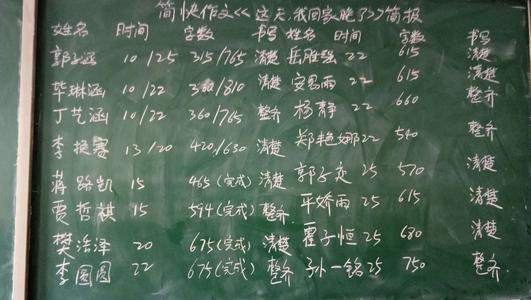 简快作文《这天,我回家晚了》简报
姓名 时间 字数 书写 姓名 时间 字数 书写
郭子涵 10/25 315/765 清楚 岳胜强 22 615 清楚
毕琳涵 10/22 /810 清楚 安思雨 22 615 清楚
丁艺涵 10/22 360/765 整齐 杨静 22 660 整齐
李换赛 13/20 420/630 清楚 郑艳娜 22 540 整齐
蒋路凯 15 465(完成) 清楚 郭子奕 25 570 清楚
贾哲祺 15 594(完成) 整齐 平娇雨 25 615 清楚
樊浩泽 20 675(完成) 清楚 霍子恒 25 630 清楚
李圆圆 22 675(完成) 整齐 孙一铭 25 750 整齐